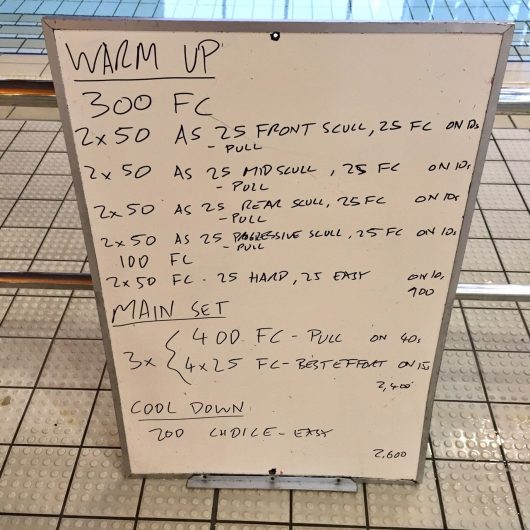 WARM UP
300 FC
2x50 AS 25 FRONT SCULL, 25 FC ON 10s
- PULL
2x50 AS 25 MID SCULL, 25 FC ON 10s
- PULL
2x50 AS 25 REAR SCULL, 25 FC ON 10s
- PULL
2x50 AS 25 PROGRESSIVE SCULL, 25 FC ON 10s
- PULL
100 FC
2x50 FC - 25 HARD, 25 EASY ON 10s
900
MAIN SET
3x { 400 FC - PULL ON 40s
4x25 FC - BEST EFFORT ON 15s
2,400
COOL DOWN
200 CHOICE - EASY
2,600